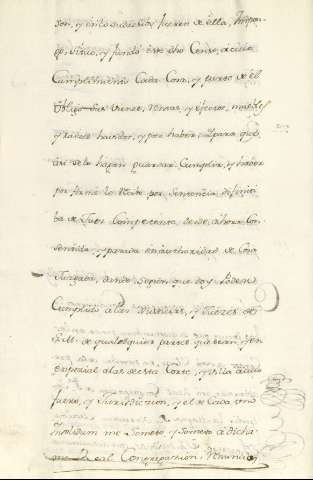 son, y en lo dudoso, fuera de ella, Impon
go, situo, y fundo este dho Censo, a cuio
Cumplimiento Cada Cosa, y parte de el
Obligo sus vienes, Rentas, y efectos, muebles
y raizes havidos, y por haver, para que
asi se lo hagan guardar, Cumplir, y haver
por firme lo Recibo por Sentencia definiti
ba de Juez Competente, desde ahora Con
sentida, y pasada en authoridad de Cosa
Juzgada, donde Suplen que doy Poder
Cumplido a las Justicias, y Juezes de
S.M. de qualesquier partes que sean, y en
especial a las de esta Corte, y Villa a cuio
fuero, y Jurisdiccion, y el de Cada uno
insolidum me Someto, y Someto a dicha
mi Real Congregacion, Renuncio